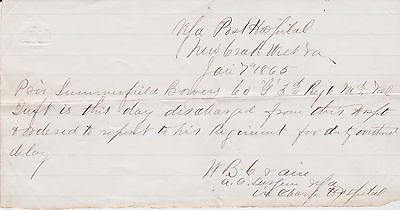 U.S.A. Post Hospital
New Creek West Va
Jan 7th 1865
Priv Summerfield Bowers Co "G" 3d Regt Md Vol
Inft is this day discharged from this Hospt
& ordered to report to his Regiment for duty without
delay
W B Crain
a. a. Surgeon U.S.A.
in Charge Hospital